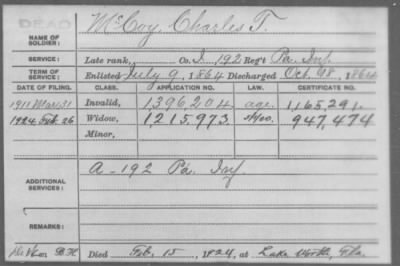 DEAD
NAME OF SOLDIER: McCoy, Charles T.
SERVICE: Late rank, Co. I, 192 Reg't Pa. Inf.
TERM OF SERVICE: Enlisted July 9, 1864 Discharged Oct. 1864
DATE OF FILING. CLASS. APPLICATION NO. LAW. CERTIFICATE NO.
1911 Mar 31 Invalid, 1,396,204 age. 1,165,291.
1924 Feb. 26 Widow, 1,215,973. 947,474
Minor,
ADDITIONAL SERVICES: A-192 Pa. Inf
REMARKS:
Died Feb. 15, 1924, at Lake Worth, Fla.